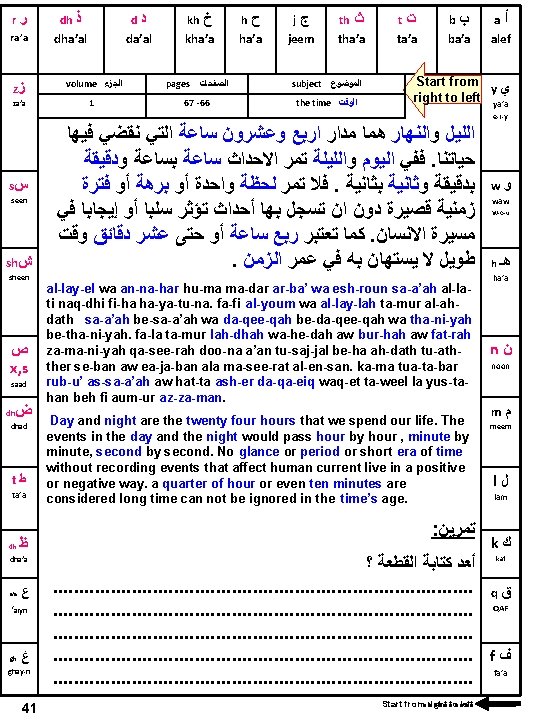 r ر dh ذ d د kh خ h ح j ج th ث t ت b ب a أ
ra’a dha’al da’al kha’a ha’a jeem tha’a ta’a ba’a alef
volume الجزء pages الصفحات subject الموضوع
1 67 -66 the time الوقت
Start from
right to left
z ز
za’a
s س
seen
sh ش
sheen
ص
x,s
saad
dh ض
dhad
t ط
ta’a
dh ظ
dha’a
ع
‘aiyn
gh غ
ghay-n
y ي
ya’a
e-i-y
w و
waw
h هـ
ha’a
n ن
noon
m م
meem
l ل
lam
k ك
kaf
q ق
QAF
f ف
fa’a
الليل والنهار هما مدار اربع وعشرون ساعة التي نقضي فيها
حياتنا. ففي اليوم والليلة تمر الاحداث ساعة بساعة ودقيقة
بدقيقة وثانية بثانية . فلا تمر لحظة واحدة أو برهة أو فترة
زمنية قصيرة دون ان تسجل بها أحداث تؤثر سلبا أو إيجابا في
مسيرة الانسان. كما تعتبر ربع ساعة أو حتى عشر دقائق وقت
طويل لا يستهان به في عمر الزمن .
al-lay-el wa an-na-har hu-ma ma-dar ar-ba’ wa esh-roun sa-a’ah al-la-
ti naq-dhi fi-ha ha-ya-tu-na. fa-fi al-youm wa al-lay-lah ta-mur al-ah-
dath sa-a’ah be-sa-a’ah wa da-qee-qah be-da-qee-qah wa tha-ni-yah
be-tha-ni-yah. fa-la ta-mur lah-dhah wa-he-dah aw bur-hah aw fat-rah
za-ma-ni-yah qa-see-rah doo-na a’an tu-saj-jal be-ha ah-dath tu-ath-
ther se-ban aw ea-ja-ban ala ma-see-rat al-en-san. ka-ma tua-ta-bar
rub-u’ as-sa-a’ah aw hat-ta ash-er da-qa-eiq waq-et ta-weel la yus-ta-
han beh fi aum-ur az-za-man.
Day and night are the twenty four hours that we spend our life. The
events in the day and the night would pass hour by hour , minute by
minute, second by second. No glance or period or short era of time
without recording events that affect human current live in a positive
or negative way. a quarter of hour or even ten minutes are
considered long time can not be ignored in the time’s age.
تمرين:
أعد كتابة القطعة ؟
41
Start from right to left